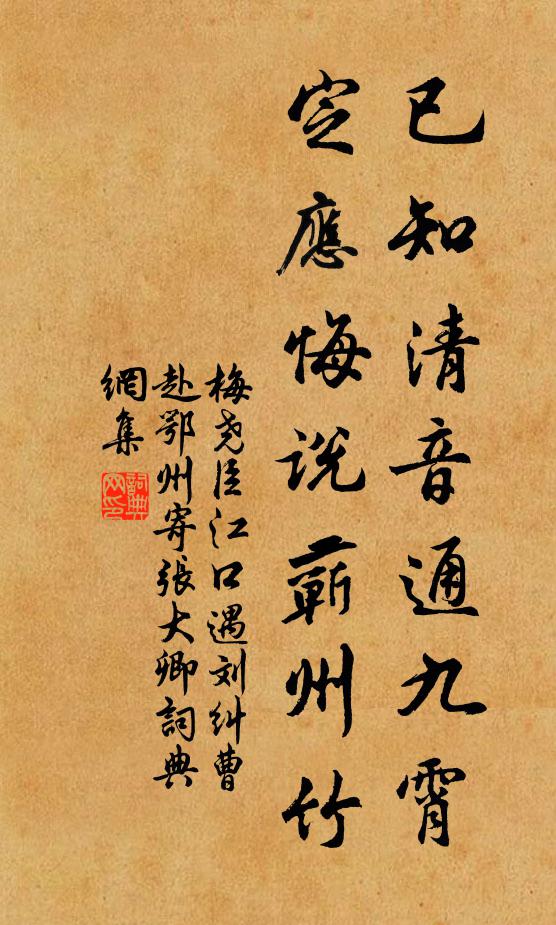 已知清音通九霄
定應悔説蘄州竹
梅尧臣江口遇刘糾曹
赴鄂州寄張大卿詞典
網集
詞典
网印